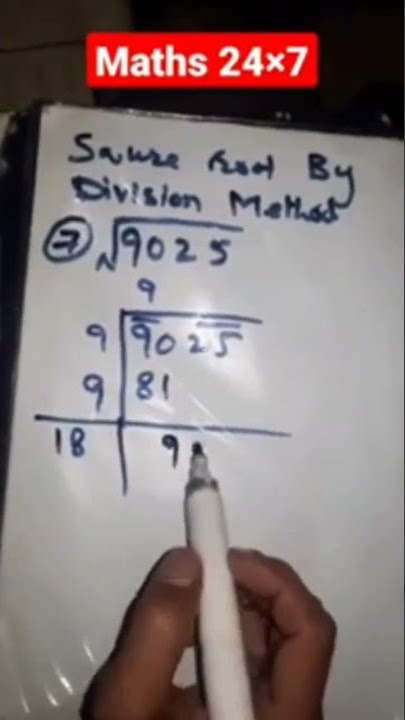 Maths 24×7
Square root By
Division Method
7 √9025
9
9 9025
9 81
18 9